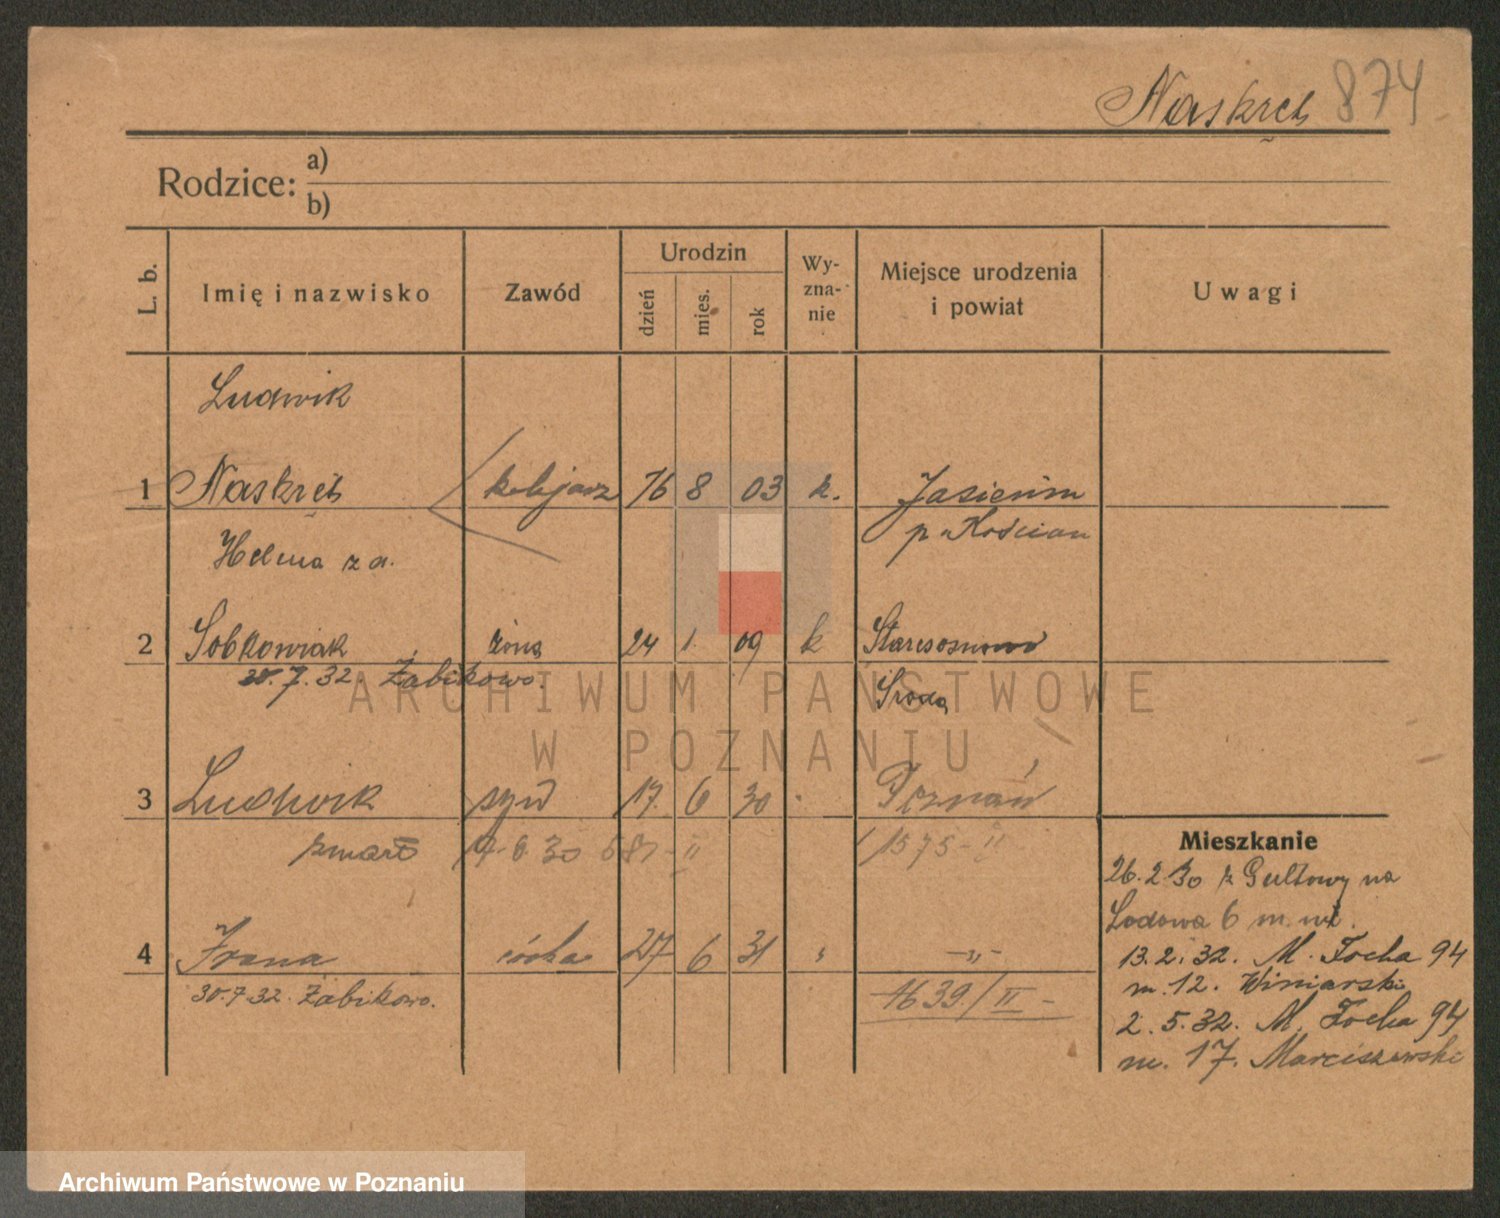 Naskręt 874
Rodzice: a)
b)
L. b. Imię i nazwisko Zawód Urodzin dzień mies. rok Wy-zna-nie Miejsce urodzenia i powiat Uwagi
Ludwik
1 Naskręt kolejarz 16 8 03 k.
p. Kościan
Helena z d.
2 Sobkowiak żona 24 1. 09 k
30.7.32. Żabikowo. Środa
ARCHIWUM PAŃSTWOWE
W POZNANIU
3 Ludwik syn 17. 6 30 Poznań
zmarł 1575-II
Mieszkanie
26.2.30 z Gułtowy na
Lodowa 6 m.
4 Irena córka 27 6 31 „ -„-
30.7.32. Żabikowo. 1639/II-
13.2.32. M. Focha 94
m. 12. Winiarski
2.5.32. M. Focha 94
m. 17. Marciszewski
Archiwum Państwowe w Poznaniu